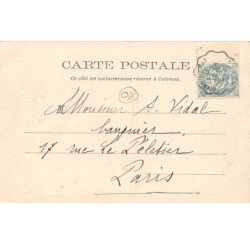 CARTE POSTALE
Ce côté est exclusivement réservé à l'adresse.
Monsieur A. Vidal
banquier
17 rue Le Peletier
Paris